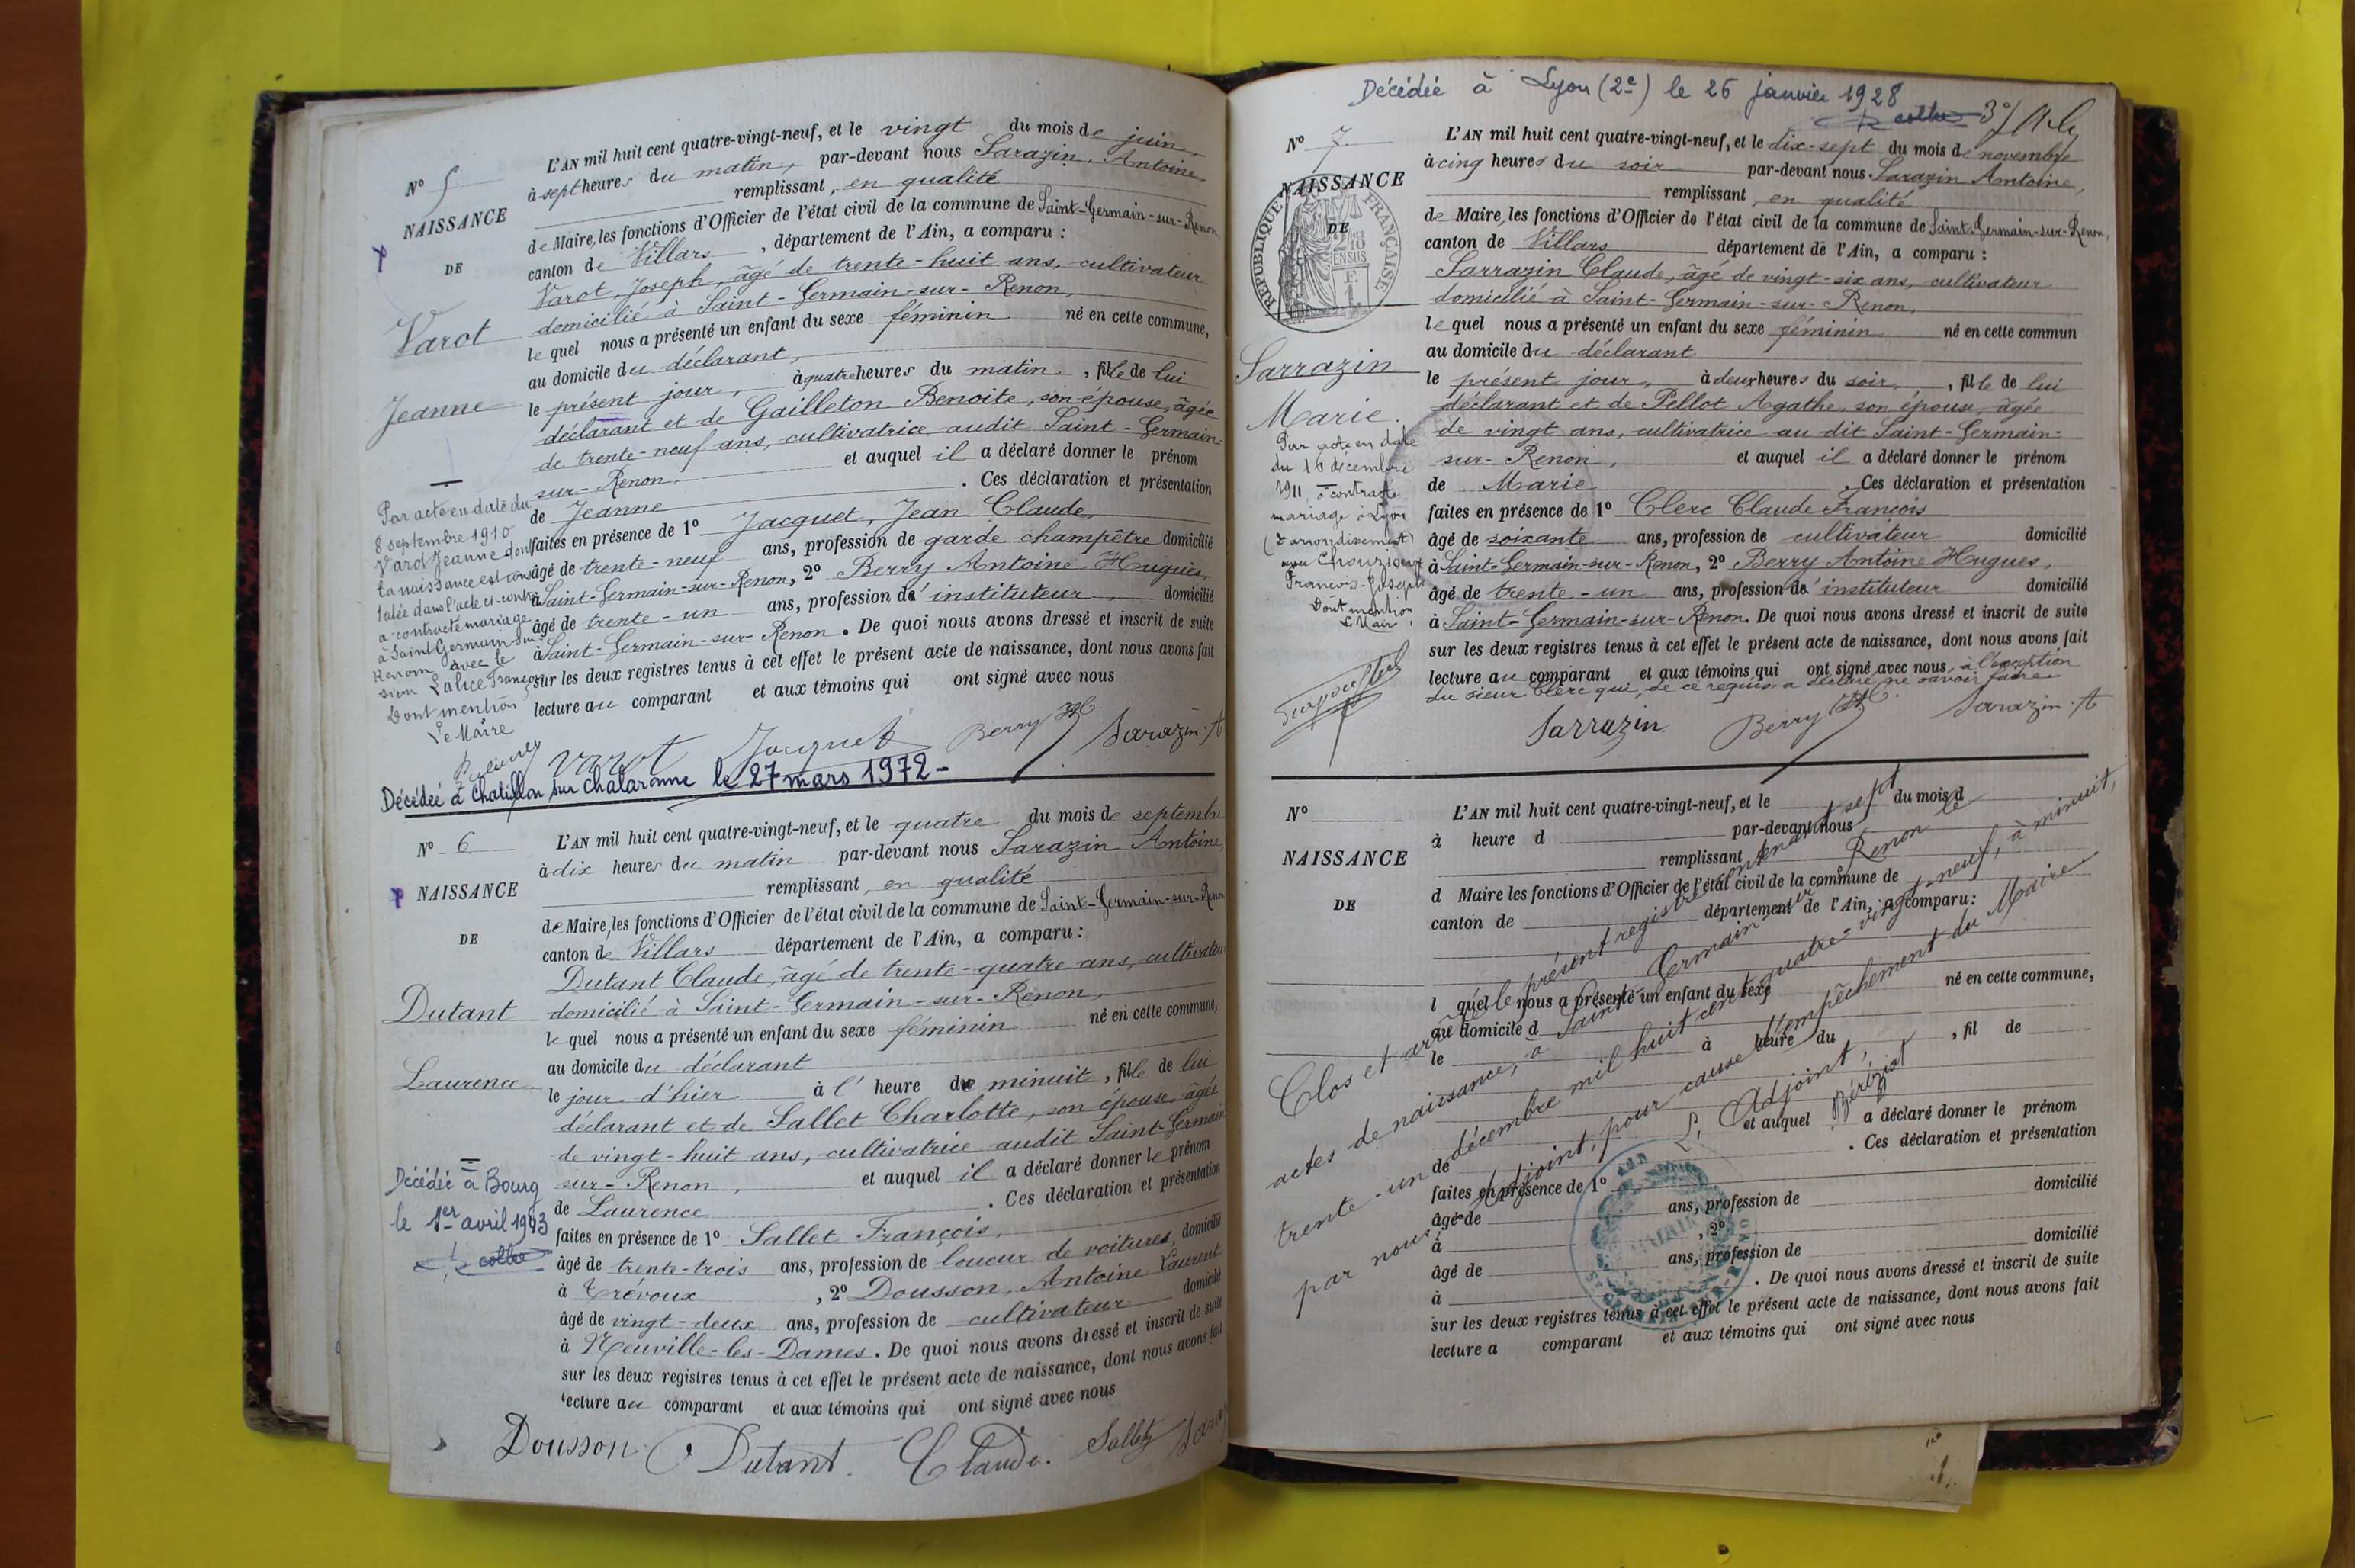 N° 5
NAISSANCE
DE
Varot
Jeanne
L'AN mil huit cent quatre-vingt-neuf, et le vingt du mois de juin,
à sept heures du matin, par-devant nous Sarazin, Antoine,
remplissant, en qualité
de Maire, les fonctions d'Officier de l'état civil de la commune de Saint-Germain-sur-Renon,
canton de Villars, département de l'Ain, a comparu :
Varot, Joseph, âgé de trente-huit ans, cultivateur
domicilié à Saint-Germain-sur-Renon,
lequel nous a présenté un enfant du sexe féminin né en cette commune,
au domicile du déclarant,
le présent jour, à quatre heures du matin, fille de lui
déclarant et de Gailleton Benoite, son épouse, âgée
de trente-neuf ans, cultivatrice audit Saint-Germain-
sur-Renon, et auquel il a déclaré donner le prénom
de Jeanne. Ces déclaration et présentation
faites en présence de 1° Jacquet, Jean Claude,
âgé de trente-neuf ans, profession de garde champêtre domicilié
à Saint-Germain-sur-Renon, 2° Berry Antoine Hugues,
âgé de trente-un ans, profession d'instituteur, domicilié
à Saint-Germain-sur-Renon. De quoi nous avons dressé et inscrit de suite
sur les deux registres tenus à cet effet le présent acte de naissance, dont nous avons fait
lecture au comparant et aux témoins qui ont signé avec nous
Varot Jacquet Berry Sarazin A
Par acte en date du
8 septembre 1910
Varot Jeanne dont
la naissance est cons
tatée dans l'acte ci-contre
a contracté mariage
à Saint Germain sur
Renom avec le
sieur François
Dont mention
Le Maire
Décédée à Chatillon sur Chalaronne le 27 mars 1972-
N° 6
NAISSANCE
DE
Dutant
Laurence
L'AN mil huit cent quatre-vingt-neuf, et le quatre du mois de septembre
à dix heures du matin par-devant nous Sarazin Antoine,
remplissant, en qualité
de Maire, les fonctions d'Officier de l'état civil de la commune de Saint-Germain-sur-Renon
canton de Villars département de l'Ain, a comparu :
Dutant Claude, âgé de trente-quatre ans, cultivateur
domicilié à Saint-Germain-sur-Renon,
lequel nous a présenté un enfant du sexe féminin né en cette commune,
au domicile du déclarant
le jour d'hier à l'heure de minuit, fille de lui
déclarant et de Sallet Charlotte, son épouse, âgée
de vingt-huit ans, cultivatrice audit Saint-Germain
sur-Renon, et auquel il a déclaré donner le prénom
de Laurence. Ces déclaration et présentation
faites en présence de 1° Sallet François,
âgé de trente-trois ans, profession de loueur de voitures, domicilié
à Trévoux, 2° Dousson, Antoine Laurent
âgé de vingt-deux ans, profession de cultivateur domicilié
à Neuville-les-Dames. De quoi nous avons dressé et inscrit de suite
sur les deux registres tenus à cet effet le présent acte de naissance, dont nous avons fait
lecture au comparant et aux témoins qui ont signé avec nous
Dousson Dutant Claude Sallet
Décédée à Bourg
le 1er avril 1943
Décédée à Lyon (2e) le 26 janvier 1928
N° 7
NAISSANCE
DE
RÉPUBLIQUE FRANÇAISE
Sarrazin
Marie
L'AN mil huit cent quatre-vingt-neuf, et le dix-sept du mois de novembre
à cinq heures du soir par-devant nous Sarazin Antoine,
remplissant, en qualité
de Maire, les fonctions d'Officier de l'état civil de la commune de Saint-Germain-sur-Renon,
canton de Villars département de l'Ain, a comparu :
Sarrazin Claude, âgé de vingt-six ans, cultivateur
domicilié à Saint-Germain-sur-Renon,
lequel nous a présenté un enfant du sexe féminin né en cette commun
au domicile du déclarant
le présent jour, à deux heures du soir, fille de lui
déclarant et de Pellot Agathe, son épouse, âgée
de vingt ans, cultivatrice au dit Saint-Germain-
sur-Renon, et auquel il a déclaré donner le prénom
de Marie. Ces déclaration et présentation
faites en présence de 1° Clerc Claude François
âgé de soixante ans, profession de cultivateur domicilié
à Saint-Germain-sur-Renon, 2° Berry Antoine Hugues,
âgé de trente-un ans, profession d'instituteur domicilié
à Saint-Germain-sur-Renon. De quoi nous avons dressé et inscrit de suite
sur les deux registres tenus à cet effet le présent acte de naissance, dont nous avons fait
lecture au comparant et aux témoins qui ont signé avec nous, à l'exception
du sieur Clerc qui, de ce requis, a déclaré ne savoir faire
Sarrazin Berry Sarazin A
Par acte en date
du 16 décembre
1911, a contracté
mariage à Lyon
arrondissement)
François-Joseph
Dont mention
Le Maire,
N°
NAISSANCE
DE
L'AN mil huit cent quatre-vingt-neuf, et le du mois d
à heure d par-devant nous
remplissant
d Maire les fonctions d'Officier de l'état civil de la commune de
canton de département de l'Ain, a comparu :
l quel nous a présenté un enfant du sexe né en cette commune,
au domicile d
le à heure du, fil de
et auquel a déclaré donner le prénom
de . Ces déclaration et présentation
faites en présence de 1°
âgé de ans, profession de domicilié
à , 2°
âgé de ans, profession de domicilié
à . De quoi nous avons dressé et inscrit de suite
sur les deux registres tenus à cet effet le présent acte de naissance, dont nous avons fait
lecture a comparant et aux témoins qui ont signé avec nous
Clos et arrêté le présent registre contenant sept
actes de naissance, à Saint Germain sur Renon le
trente-un décembre mil huit cent quatre-vingt-neuf, à minuit,
par nous Adjoint, pour cause d'empêchement du Maire
L'Adjoint,